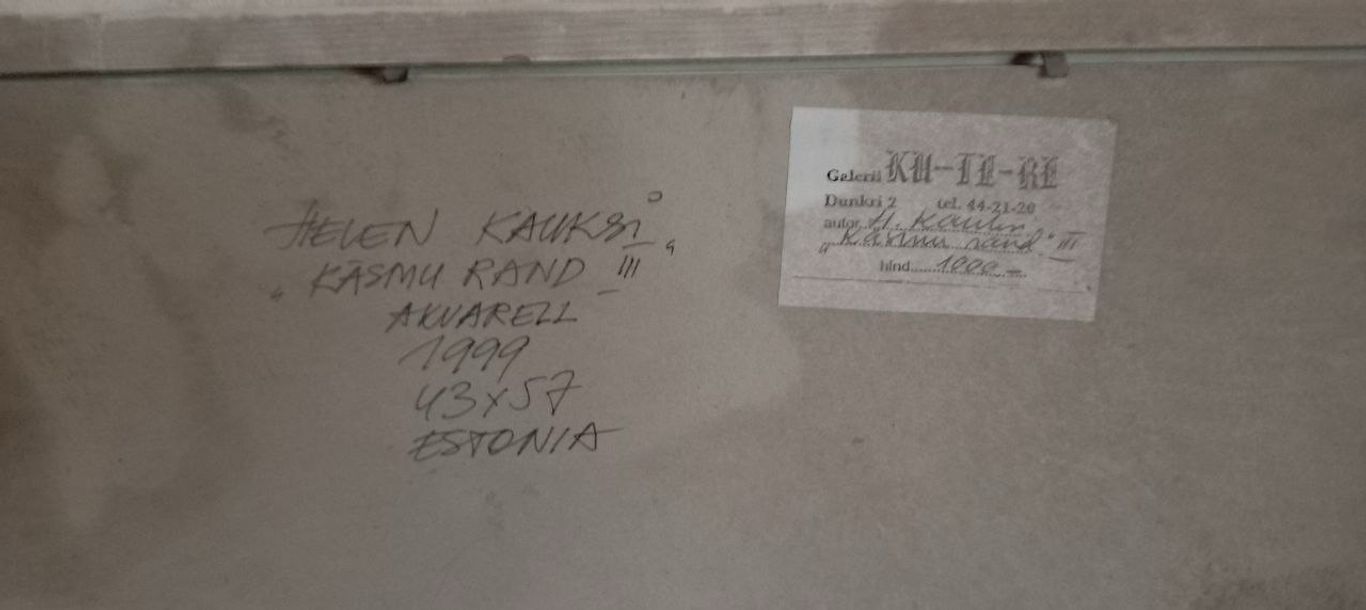 HELEN KAUKSI
„KÄSMU RAND III“
AKVARELL
1999
43x57
ESTONIA
Galerii KU-TE-RE
Dunkri 2 tel. 44-21-20
autor H. Kauksi
„Käsmu rand“ III
hind 1000 –